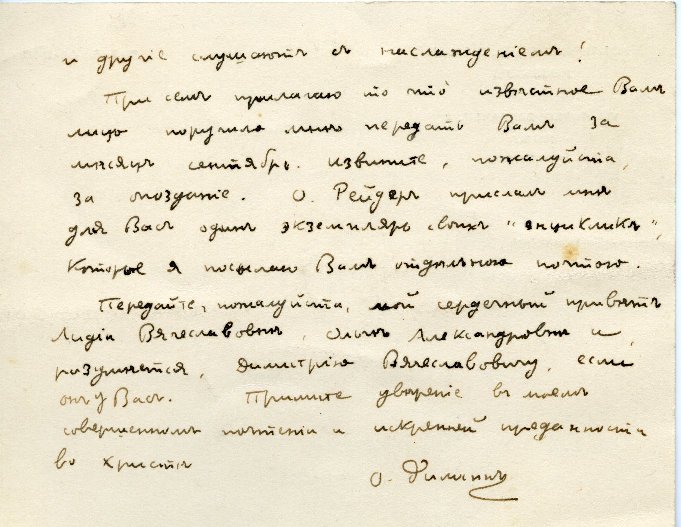 и другіе слушаютъ съ наслажденіемъ!
При семъ прилагаю то что извѣстное Вамъ
лицо поручило мнѣ передать Вамъ за
мѣсяцъ сентябрь. Извините, пожалуйста,
за опозданіе. О. Рейдеръ прислалъ мнѣ
для Васъ одинъ экземпляръ своихъ "энцикликъ",
которые я посылаю Вамъ отдѣльною почтою.
Передайте, пожалуйста, мой сердечный привѣтъ
Лидіи Вячеславовнѣ, Ольгѣ Александровнѣ и,
разумѣется, Димитрію Вячеславовичу, если
онъ у Васъ. Примите увѣреніе въ моемъ
совершенномъ почтеніи и искренней преданности
во Христѣ
о.